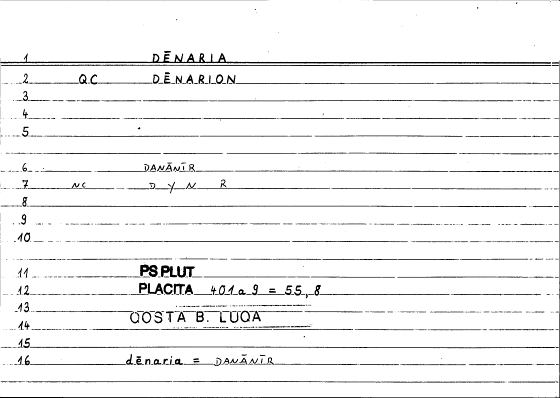 1 DĒNARIA
2 QC DĒNARION
3
4
5
6 DANĀNĪR
7 NC D Y N R
8
9
10
11 PS PLUT
12 PLACITA 401a9 = 55,8
13
QOSTA B. LUQA
14
15
16 dēnaria = DANĀNĪR